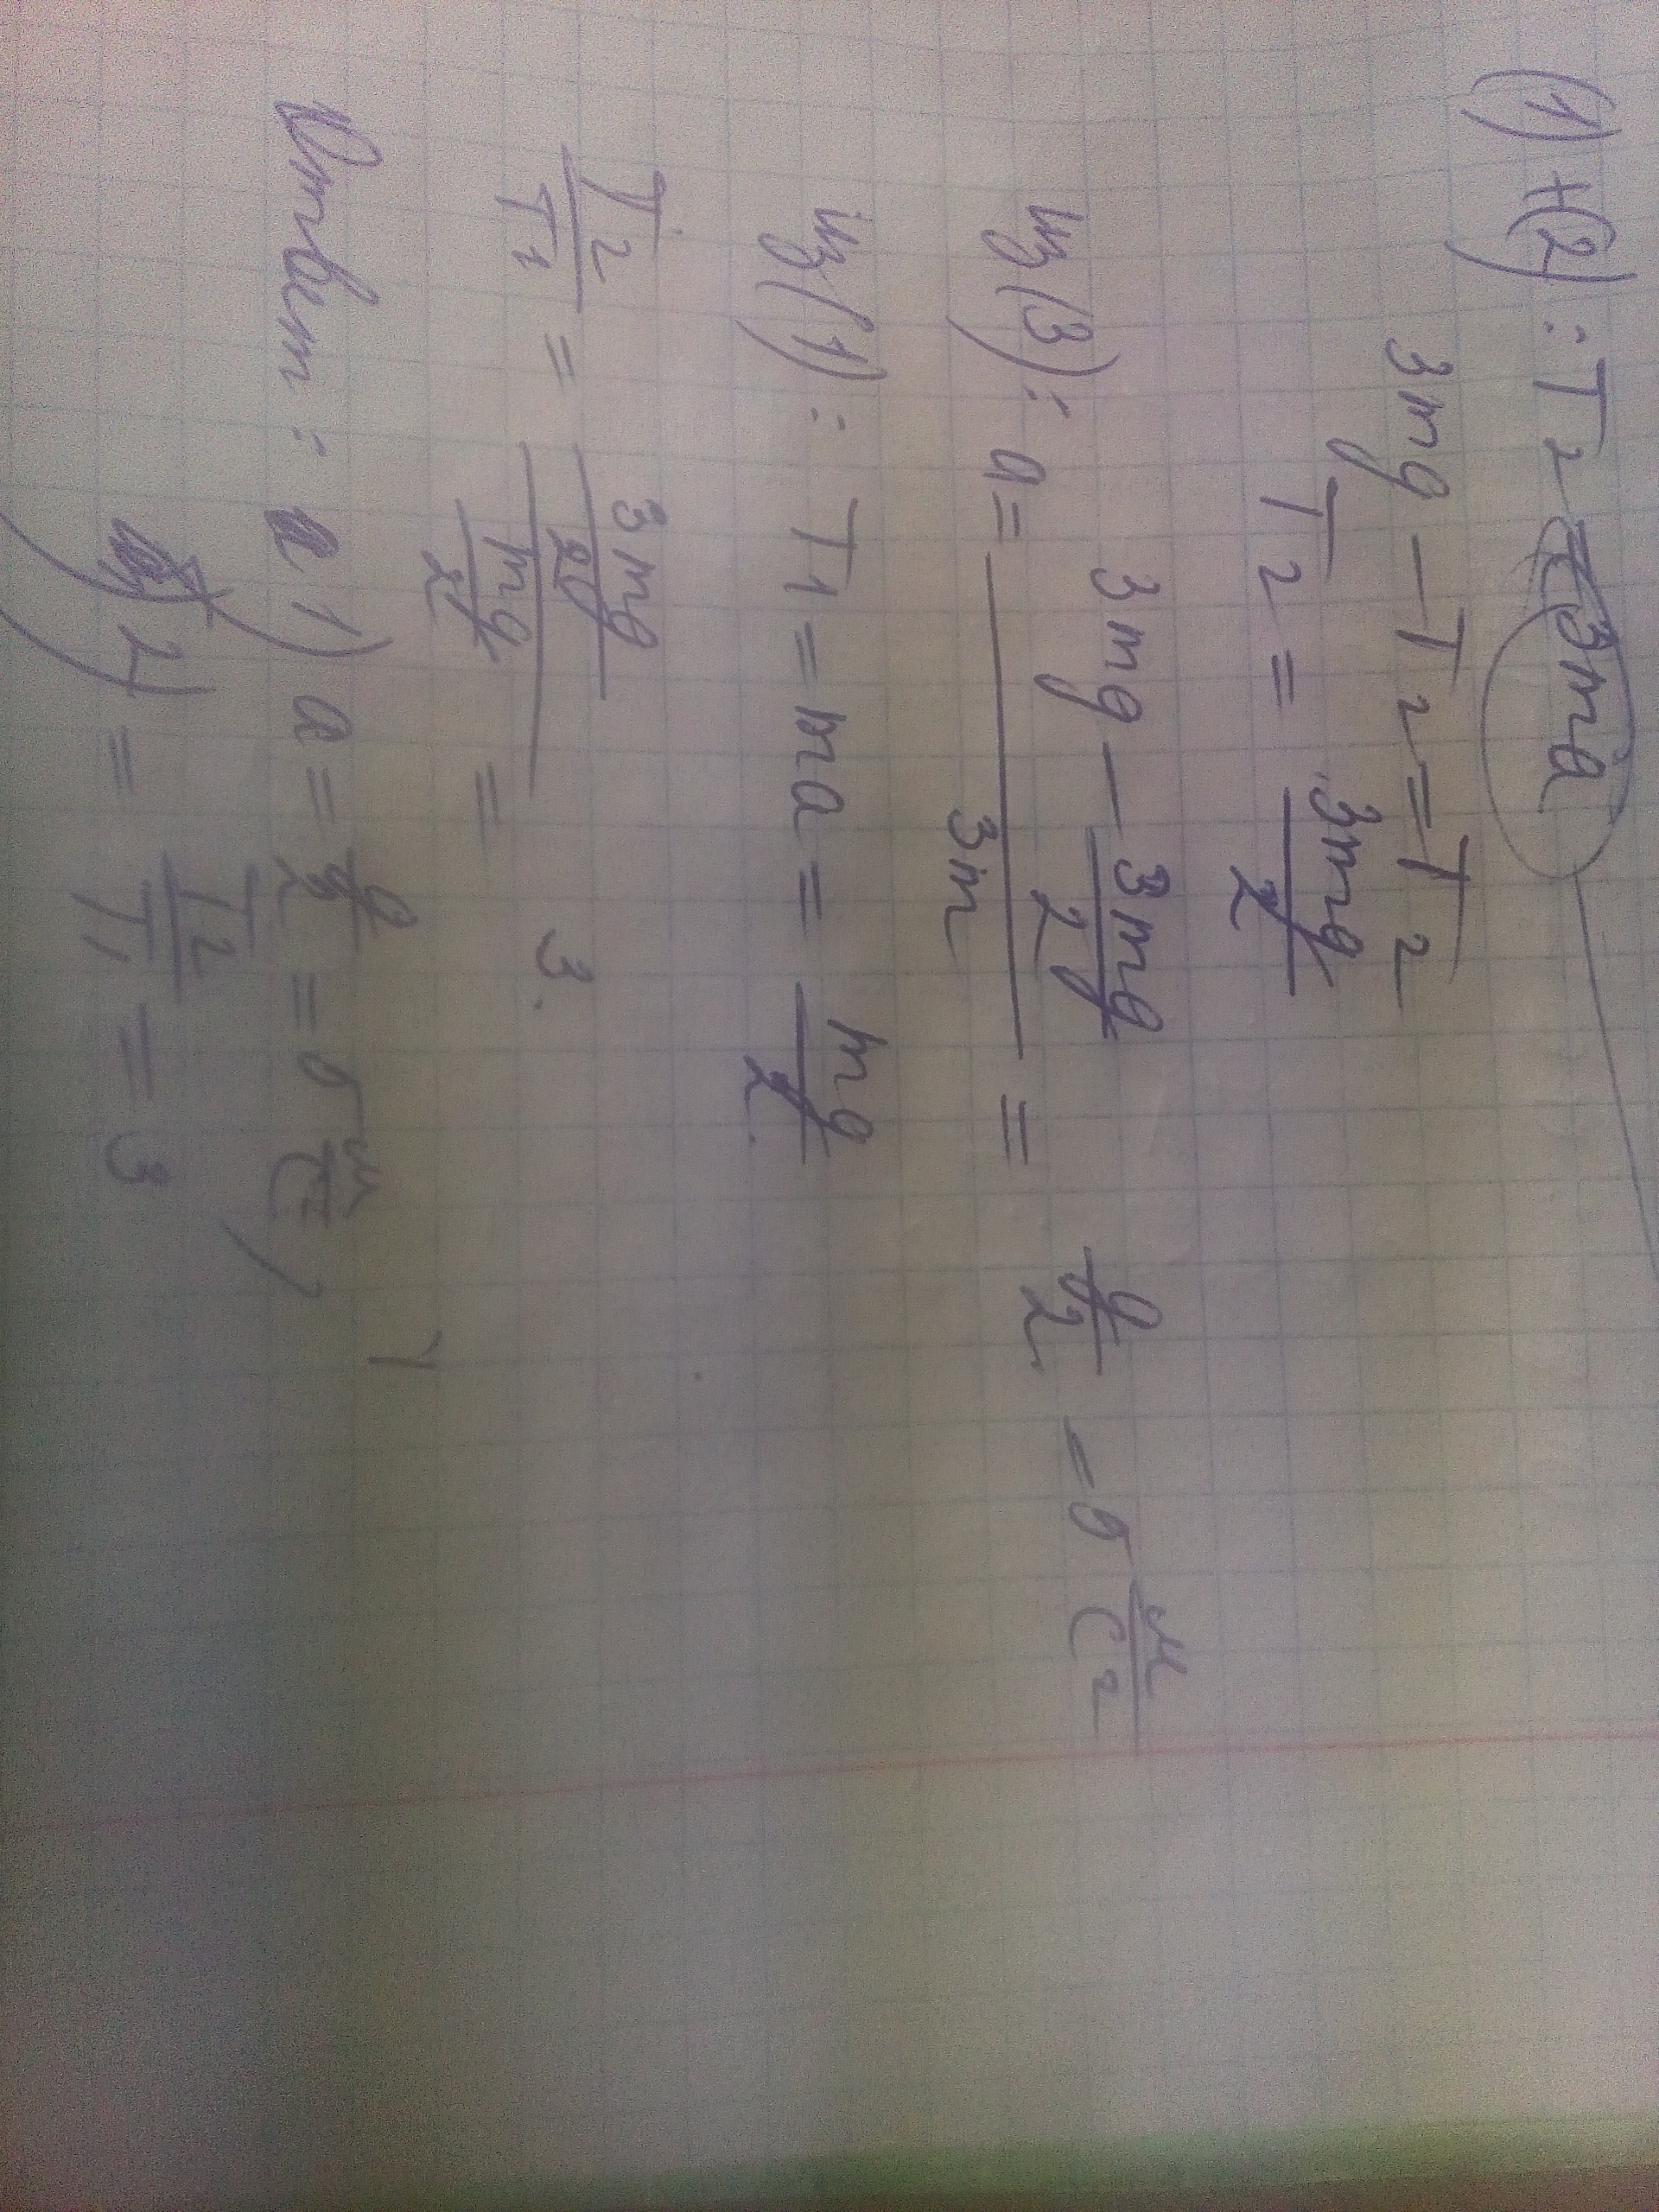 (1)+(2): T2 = 3ma
3mg - T2 = T2
T2 = 3mg/2
из(3): a = (3mg - 3mg/2)/3m = g/2 = 5 м/с2
из(1): T1 = ma = mg/2
T2/T1 = (3mg/2)/(mg/2) = 3.
Ответ: 1) a = g/2 = 5 м/с2)
2) = T2/T1 = 3